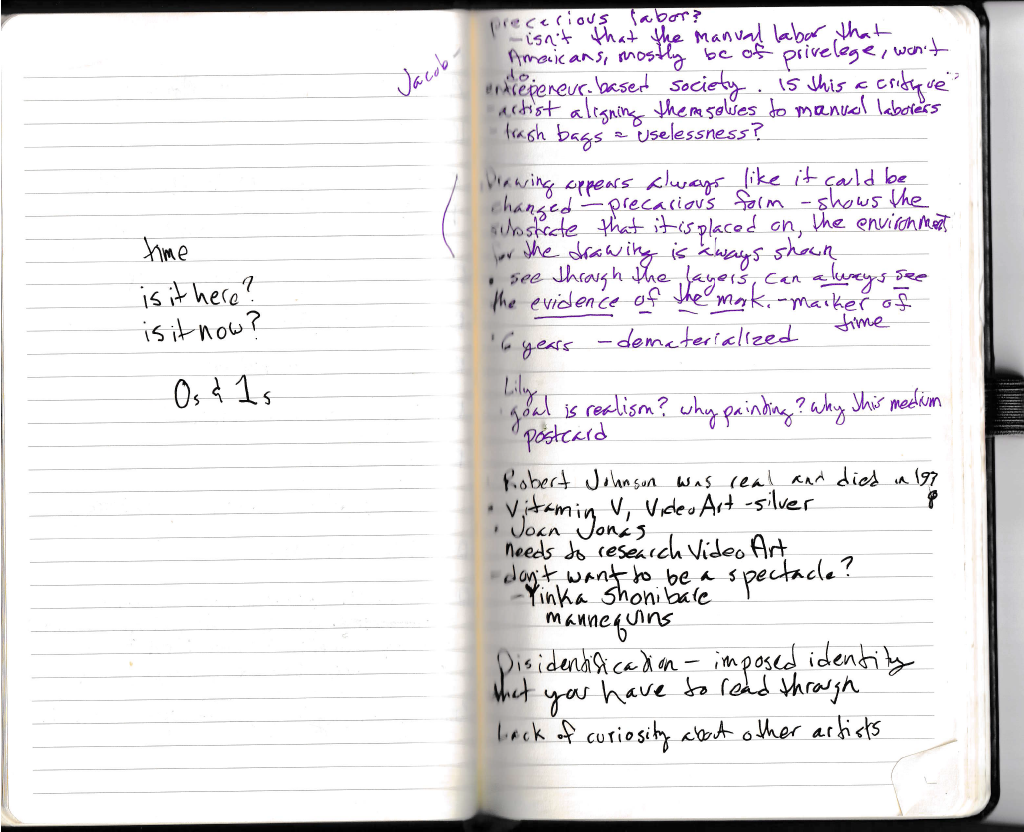 time
is it here?
is it now?
0s & 1s
Jacob-
precarious labor?
-isn't that the manual labor that
Americans, mostly bc of privelege, won't
do
entrepeneur-based society. Is this a critique
-artist aligning themselves to manual laborers
trash bags = uselessness?
Drawing appears always like it could be
changed — precarious form - shows the
substrate that it is placed on, the environment
for the drawing is always shown
• see through the layers, can always see
the evidence of the mark. - marker of
time
6 years - dematerialized
Lily
goal is realism? why painting? why this medium
postcard
Robert Johnson was real and died in
• Vitamin V, Video Art - silver
• Joan Jonas
needs to research Video Art
- don't want to be a spectacle?
- Yinka Shonibare
mannequins
Disidentification - imposed identity
that you have to read through
Lack of curiosity about other artists